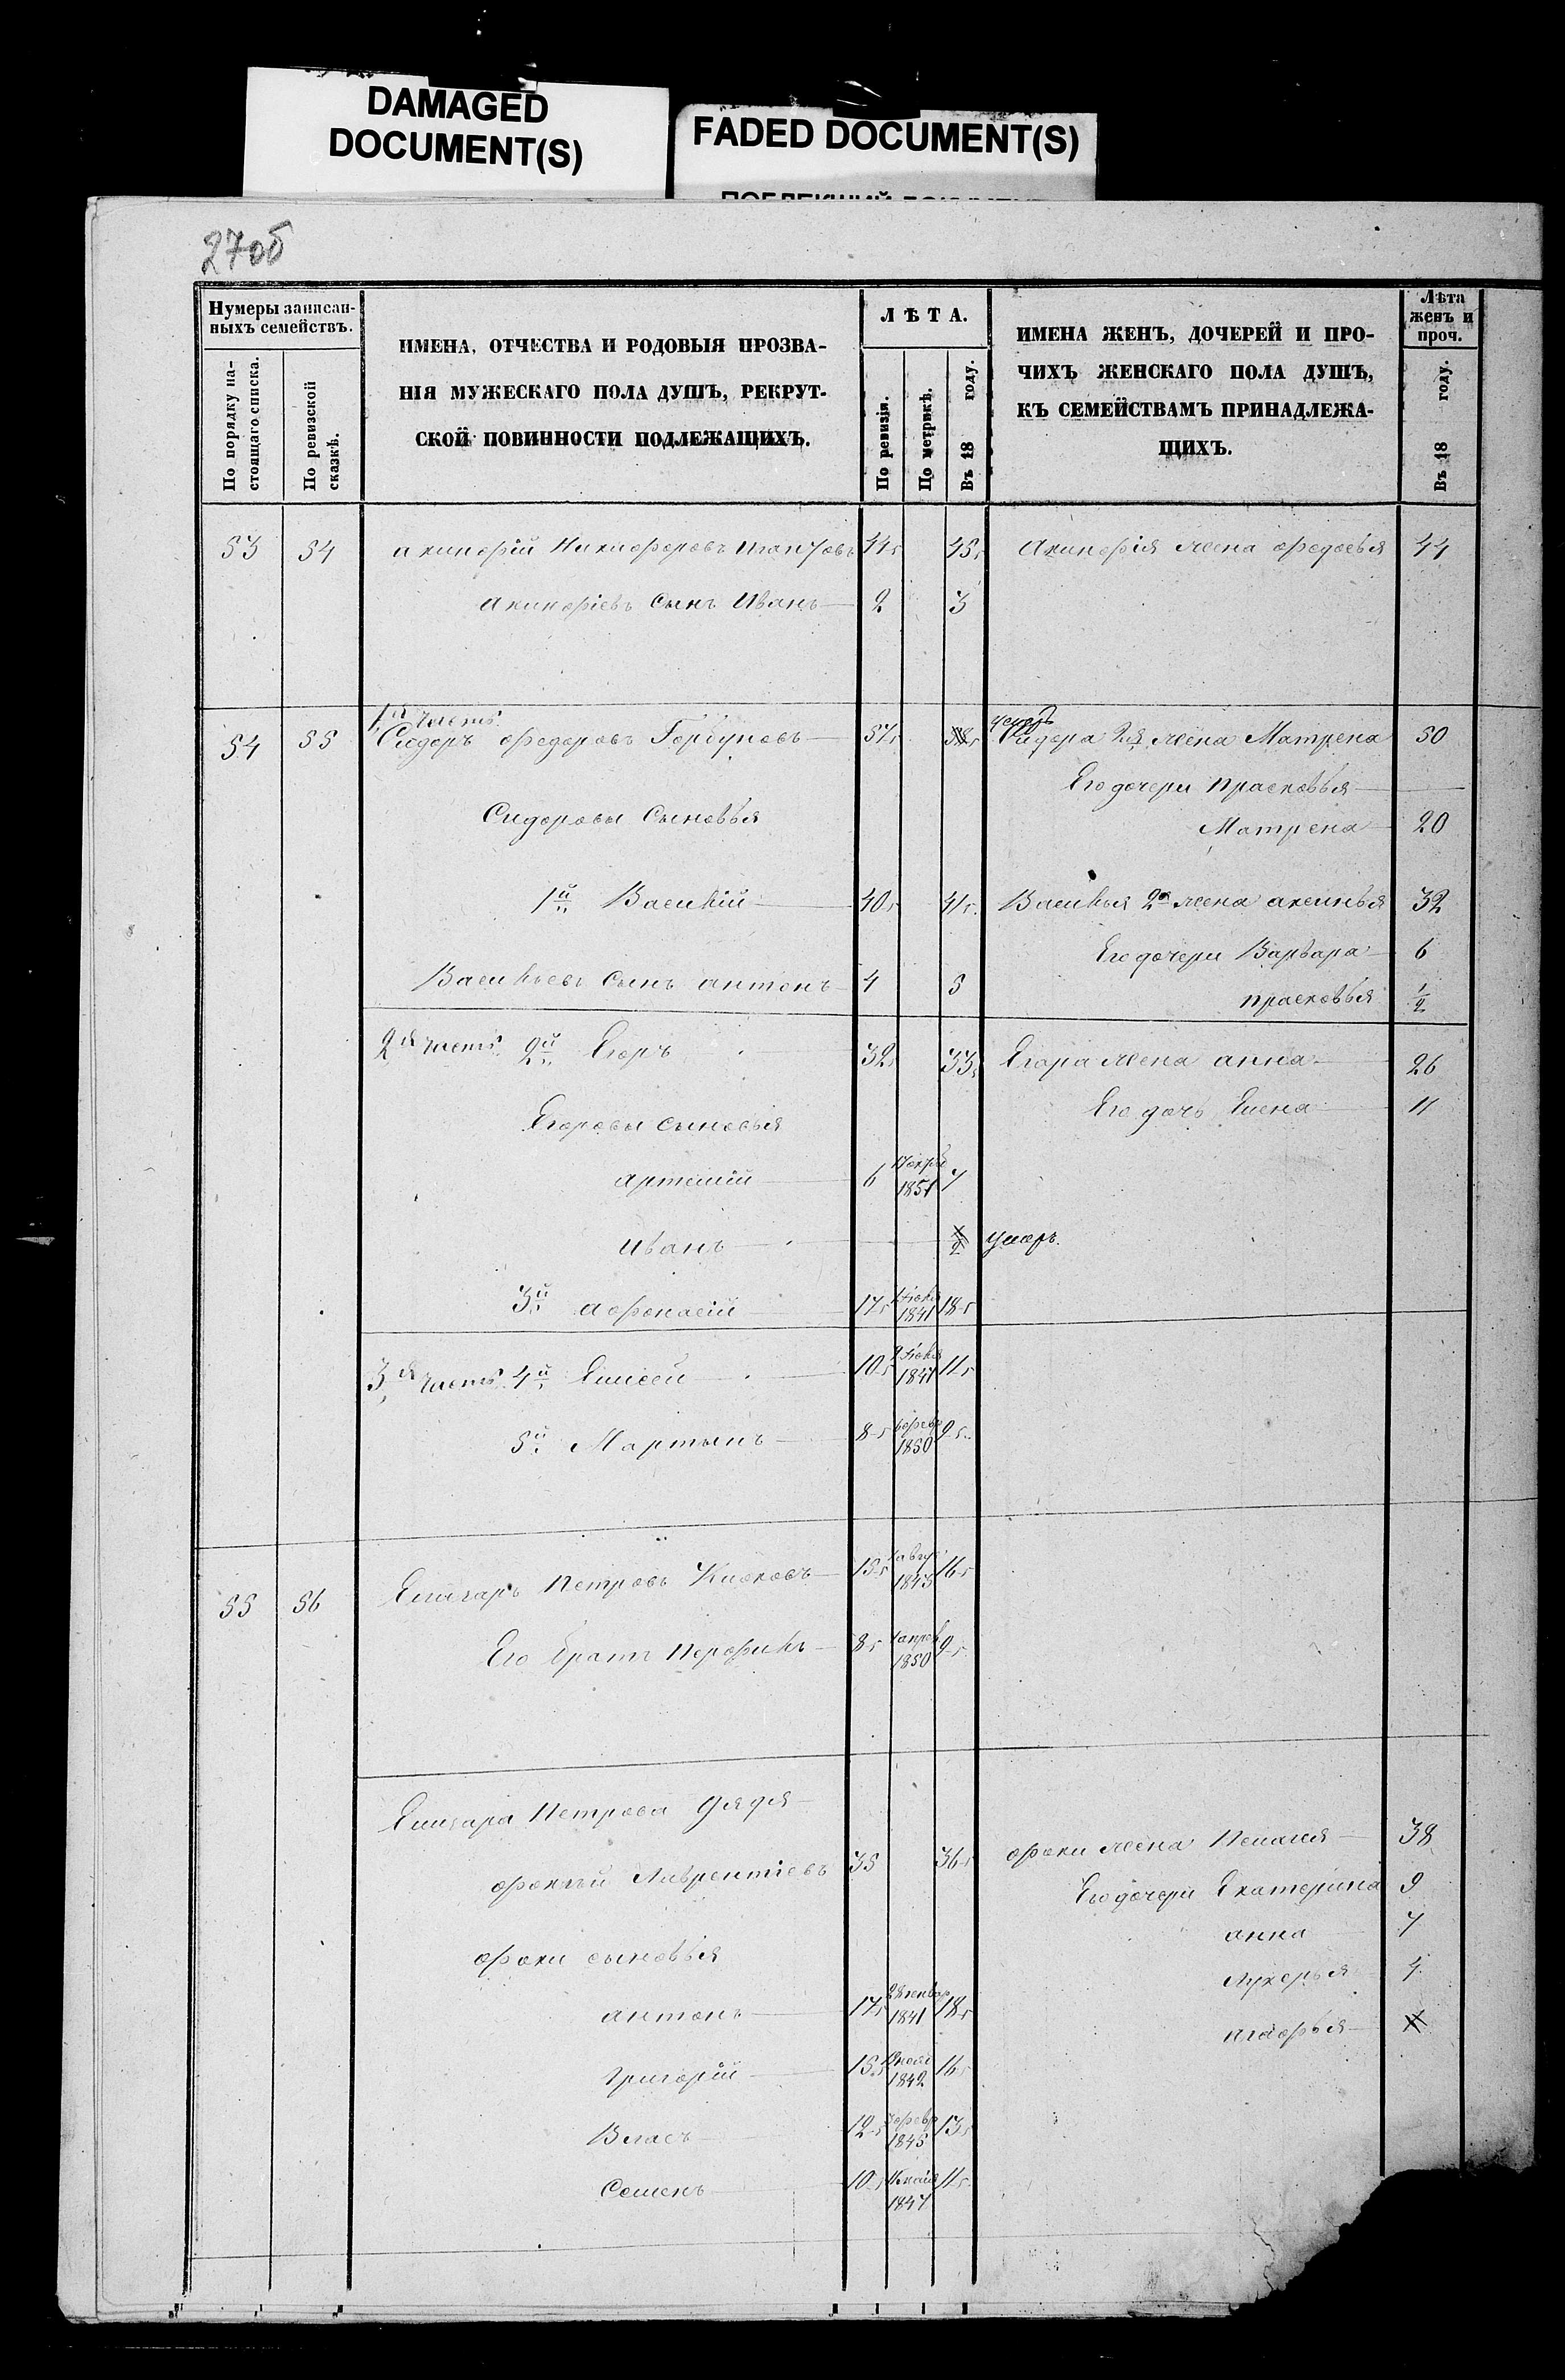 DAMAGED
DOCUMENT(S)
FADED DOCUMENT(S)
27об
Нумеры записан-
ныхъ семействъ.
По порядку на-
стоящаго списка.
По ревизской
сказкѣ.
ИМЕНА, ОТЧЕСТВА И РОДОВЫЯ ПРОЗВА-
НІЯ МУЖЕСКАГО ПОЛА ДУШЪ, РЕКРУТ-
СКОЙ ПОВИННОСТИ ПОДЛЕЖАЩИХЪ.
ЛѢТА.
По ревизіи.
По метрикѣ.
Въ 18 году.
ИМЕНА ЖЕНЪ, ДОЧЕРЕЙ И ПРО-
ЧИХЪ ЖЕНСКАГО ПОЛА ДУШЪ,
КЪ СЕМЕЙСТВАМЪ ПРИНАДЛЕЖА-
ЩИХЪ.
Лѣта
женъ и
проч.
Въ 18 году.
53 54 Акинфій Никифоровъ 44 45 Акинфія жена Федосья 44
Акинфіевъ сынъ Иванъ 2 3
1я часть
54 55 Сидоръ Федоровъ Горбуновъ 57 58 Сидора 2я жена Матрена 50
Его дочери Прасковья
Сидоровы Сыновья Матрена 20
1й Василій 40 41 Василья 2я жена Аксинья 32
Его дочери Варвара 6
Васильевъ Сынъ Антонъ 4 5
Прасковья 1/2
2я часть. 2й Егоръ 32 33 Егора жена Анна 26
Его дочь Елена 11
Егоровы сыновья
Артемій 6 1851 7
Иванъ умеръ.
3й Афонасій 17 1841 18
3я часть 4й Елисей 10 1847 11
5й Мартынъ 8 февр 1850 9
55 56 Елизаръ Петровъ 15 авгус 1843 16
Его братъ Перфилъ 8 апрѣл 1850 9
Елизара Петрова дядя
Фокъ Лаврентіевъ 35 36 Фоки жена Пелагея 38
Его дочери Екатерина 9
Анна 7
Фоки сыновья
Лукерья 4
Антонъ 17 январ 1841 18
Агафья
Григорій 15 1842 16
Власъ 12 февр 1845 13
Семенъ 10 мая 1847 11